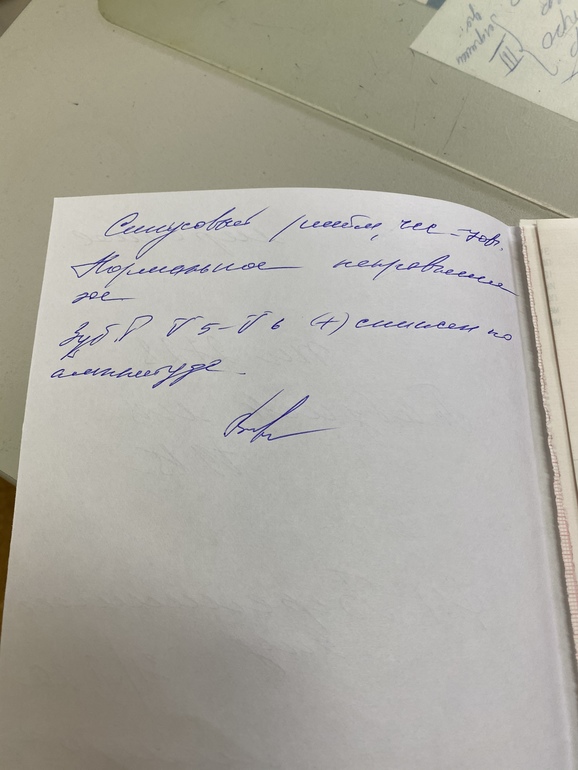 III
Синусовый ритм, чсс - 70 в1.
Нормальное направление
эос
Зуб. Т V5-V6 (+) снижен по
амплитуде.